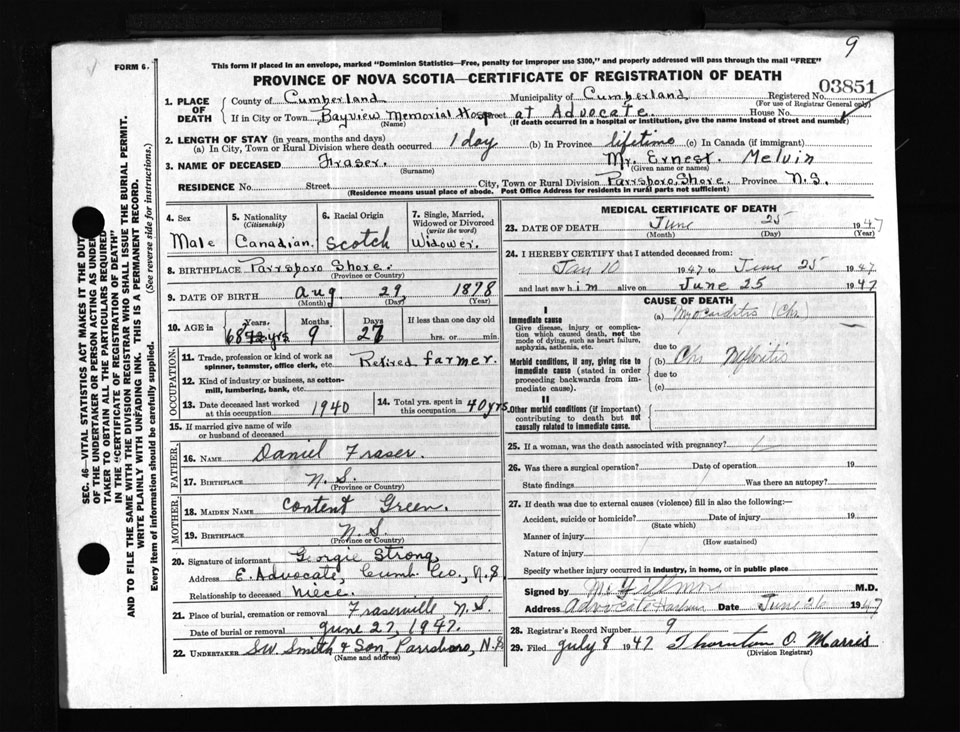 9
FORM 6.
This form if placed in an envelope, marked "Dominion Statistics—Free, penalty for improper use $300," and properly addressed will pass through the mail "FREE"
PROVINCE OF NOVA SCOTIA—CERTIFICATE OF REGISTRATION OF DEATH
03851
1. PLACE OF DEATH
County of Cumberland Municipality of Cumberland Registered No.
(For use of Registrar General only)
If in City or Town Bayview Memorial Hosp Street at Advocate. House No.
(Name) (If death occurred in a hospital or institution, give the name instead of street and number)
2. LENGTH OF STAY (in years, months and days)
(a) In City, Town or Rural Division where death occurred 1 day (b) In Province lifetime (c) In Canada (if immigrant)
3. NAME OF DECEASED Fraser. Mr. Ernest Melvin
(Surname) (Given name or names)
RESIDENCE No. Street City, Town or Rural Division Parrsboro Shore. Province N.S.
(Residence means usual place of abode. Post Office Address for residents in rural parts not sufficient)
4. Sex Male
5. Nationality (Citizenship) Canadian.
6. Racial Origin Scotch
7. Single, Married, Widowed or Divorced (write the word) Widower.
8. BIRTHPLACE Parrsboro Shore.
(Province or Country)
9. DATE OF BIRTH Aug 29, 1878
(Month) (Day) (Year)
10. AGE in Years Months Days If less than one day old
68 yrs 9 27 hrs. or min.
OCCUPATION
11. Trade, profession or kind of work as spinner, teamster, office clerk, etc. Retired farmer.
12. Kind of industry or business, as cotton-mill, lumbering, bank, etc.
13. Date deceased last worked at this occupation 1940
14. Total yrs. spent in this occupation 40 yrs.
15. If married give name of wife or husband of deceased
FATHER
16. NAME Daniel Fraser.
17. BIRTHPLACE N.S.
(Province or Country)
MOTHER
18. MAIDEN NAME Content Green.
19. BIRTHPLACE N.S.
(Province or Country)
20. Signature of informant Georgie Strong
Address E. Advocate, Cumb. Co., N.S.
Relationship to deceased niece.
21. Place of burial, cremation or removal Fraserville N.S.
Date of burial or removal June 27, 1947.
22. UNDERTAKER S.W. Smith & Son, Parrsboro, N.S
(Name and address)
MEDICAL CERTIFICATE OF DEATH
23. DATE OF DEATH June 25 1947
(Month) (Day) (Year)
24. I HEREBY CERTIFY that I attended deceased from:
Jan 10 1947 to June 25 1947
and last saw him alive on June 25 1947
CAUSE OF DEATH
I
Immediate cause
Give disease, injury or complication which caused death, not the mode of dying, such as heart failure, asphyxia, asthenia, etc.
(a) Myocarditis (Chr)
due to
Morbid conditions, if any, giving rise to immediate cause (stated in order proceeding backwards from immediate cause).
(b) Chr Nephritis
due to
(c)
II
Other morbid conditions (if important) contributing to death but not causally related to immediate cause.
25. If a woman, was the death associated with pregnancy?
26. Was there a surgical operation? Date of operation 19
State findings Was there an autopsy?
27. If death was due to external causes (violence) fill in also the following:—
Accident, suicide or homicide? Date of injury 19
(State which)
Manner of injury
(How sustained)
Nature of injury
Specify whether injury occurred in industry, in home, or in public place
Signed by M.D.
Address Advocate Harbour Date June 26 1947
28. Registrar's Record Number 9
29. Filed July 8 1947 Thornton O. Morris
(Division Registrar)
SEC. 46—VITAL STATISTICS ACT MAKES IT THE DUTY
OF THE UNDERTAKER OR PERSON ACTING AS UNDER-
TAKER TO OBTAIN ALL THE PARTICULARS REQUIRED
IN THE "CERTIFICATE OF REGISTRATION OF DEATH"
AND TO FILE THE SAME WITH THE DIVISION REGISTRAR WHO SHALL ISSUE THE BURIAL PERMIT.
WRITE PLAINLY WITH UNFADING INK. THIS IS A PERMANENT RECORD.
Every item of information should be carefully supplied. (See reverse side for instructions.)